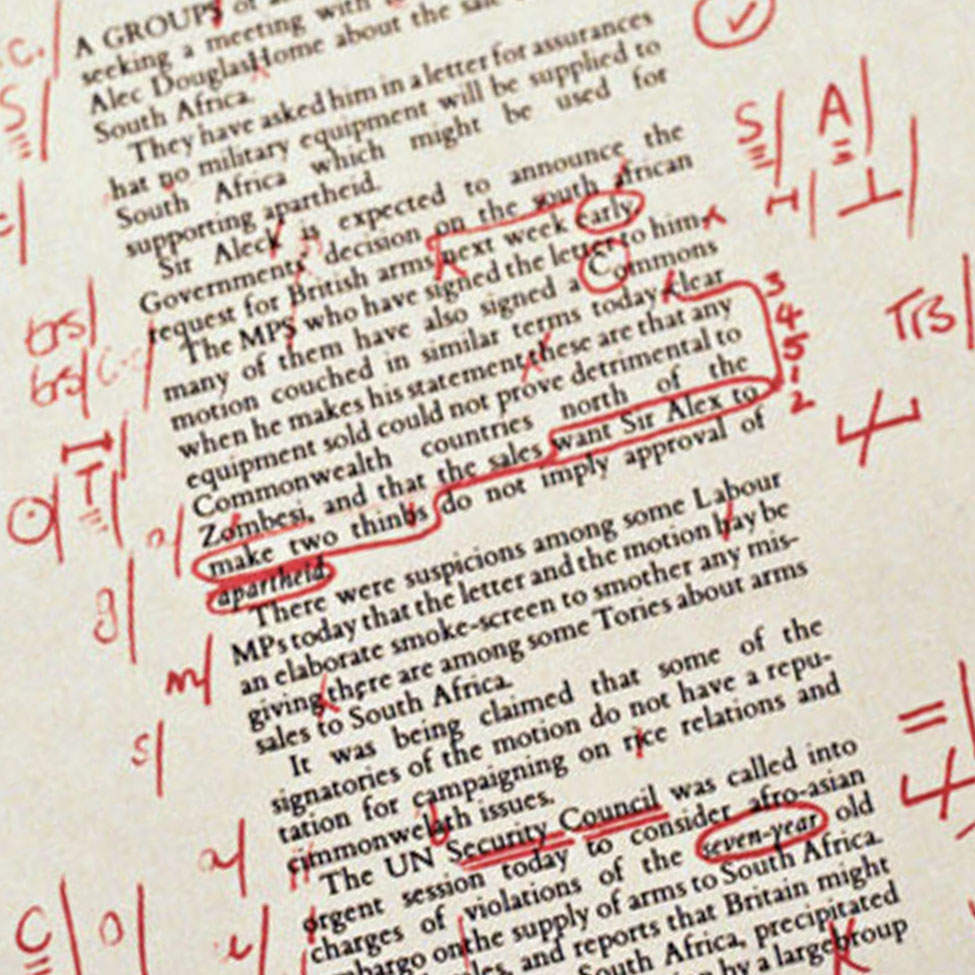 A GROUPS of
seeking a meeting with
Alec DouglasHome about the
South Africa.
They have asked him in a letter for assurances
hat no military equipment will be supplied to
South Africa which might be used for
supporting apartheid.
Sir Aleck is expected to announce the
Government's decision on the south african
request for British arms next week early.
The MPs who have signed the letter to him
many of them have also signed a Commons
motion couched in similar terms today clear
when he makes his statement these are that any
equipment sold could not prove detrimental to
Commonwealth countries north of the
Zombesi, and that the sales want Sir Alex to
make two thinbs do not imply approval of
apartheid.
There were suspicions among some Labour
MPs today that the letter and the motion hay be
an elaborate smoke-screen to smother any mis-
giving there are among some Tories about arms
sales to South Africa.
It was being claimed that some of the
signatories of the motion do not have a repu-
tation for campaigning on rice relations and
cimmonwelath issues.
The UN Security Council was called into
orgent session today to consider afro-asian
charges of violations of the seven-year old
mbargo onthe supply of arms to South Africa.
les, and reports that Britain might
South Africa, precipitated
by a large broup
S
S A
trs
trs
TRS
3
4
5
1
2
T
g
m
s
a
C
o